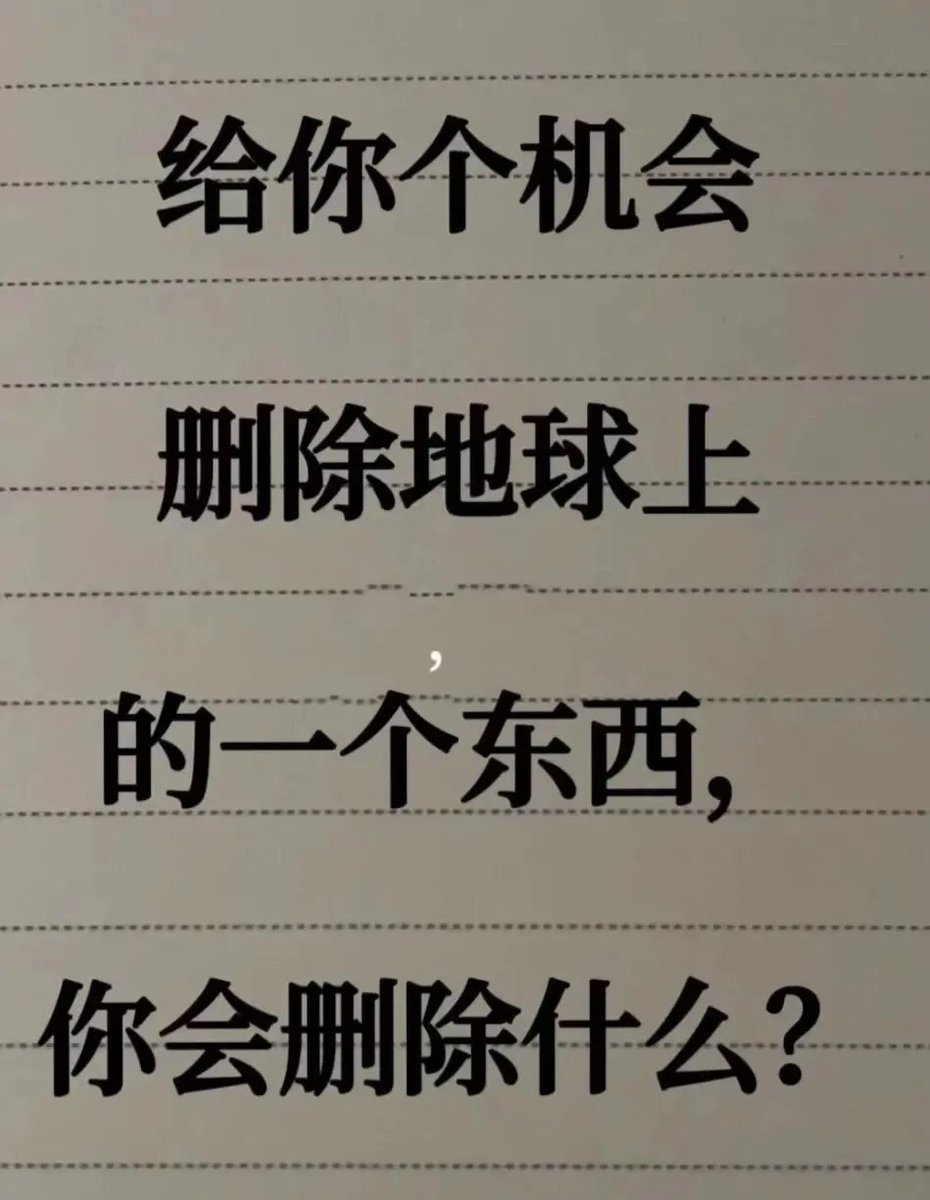 给你个机会
删除地球上
，
的一个东西,
你会删除什么?